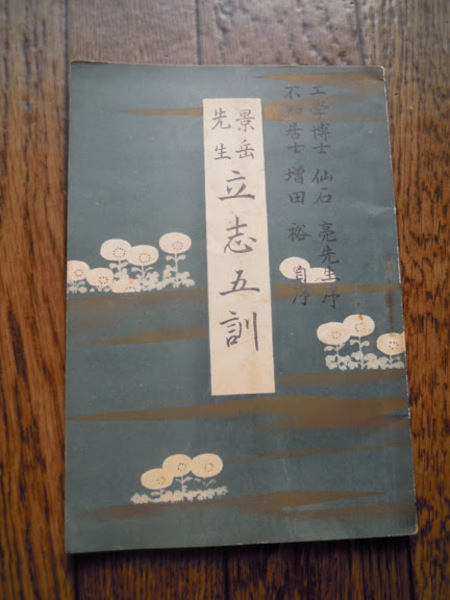 工学博士 仙石 亮先生序
不知居士 増田 裕 自序
景岳先生 立志五訓